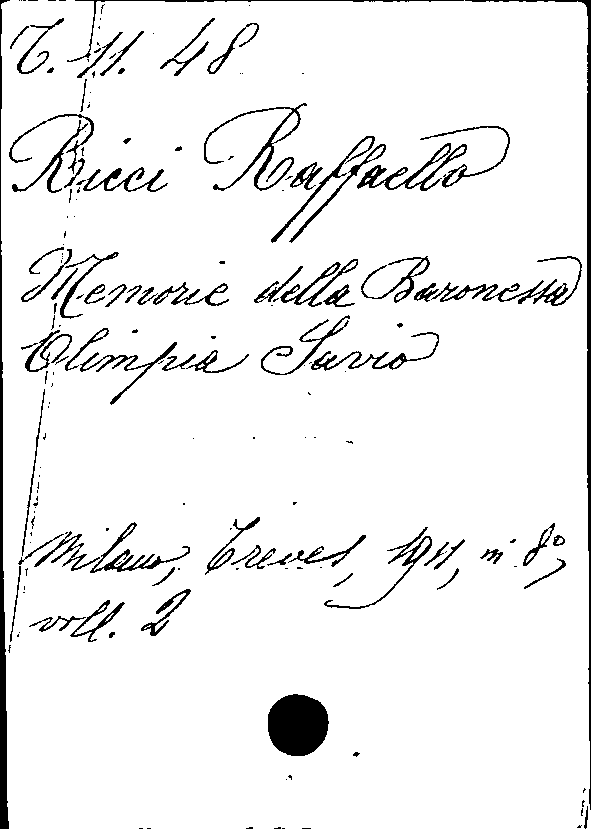 T. 11. 48
Ricci Raffaello
Memorie della Baronessa
Olimpia Savio
Milano, Treves, 1911, in 8º,
voll. 2